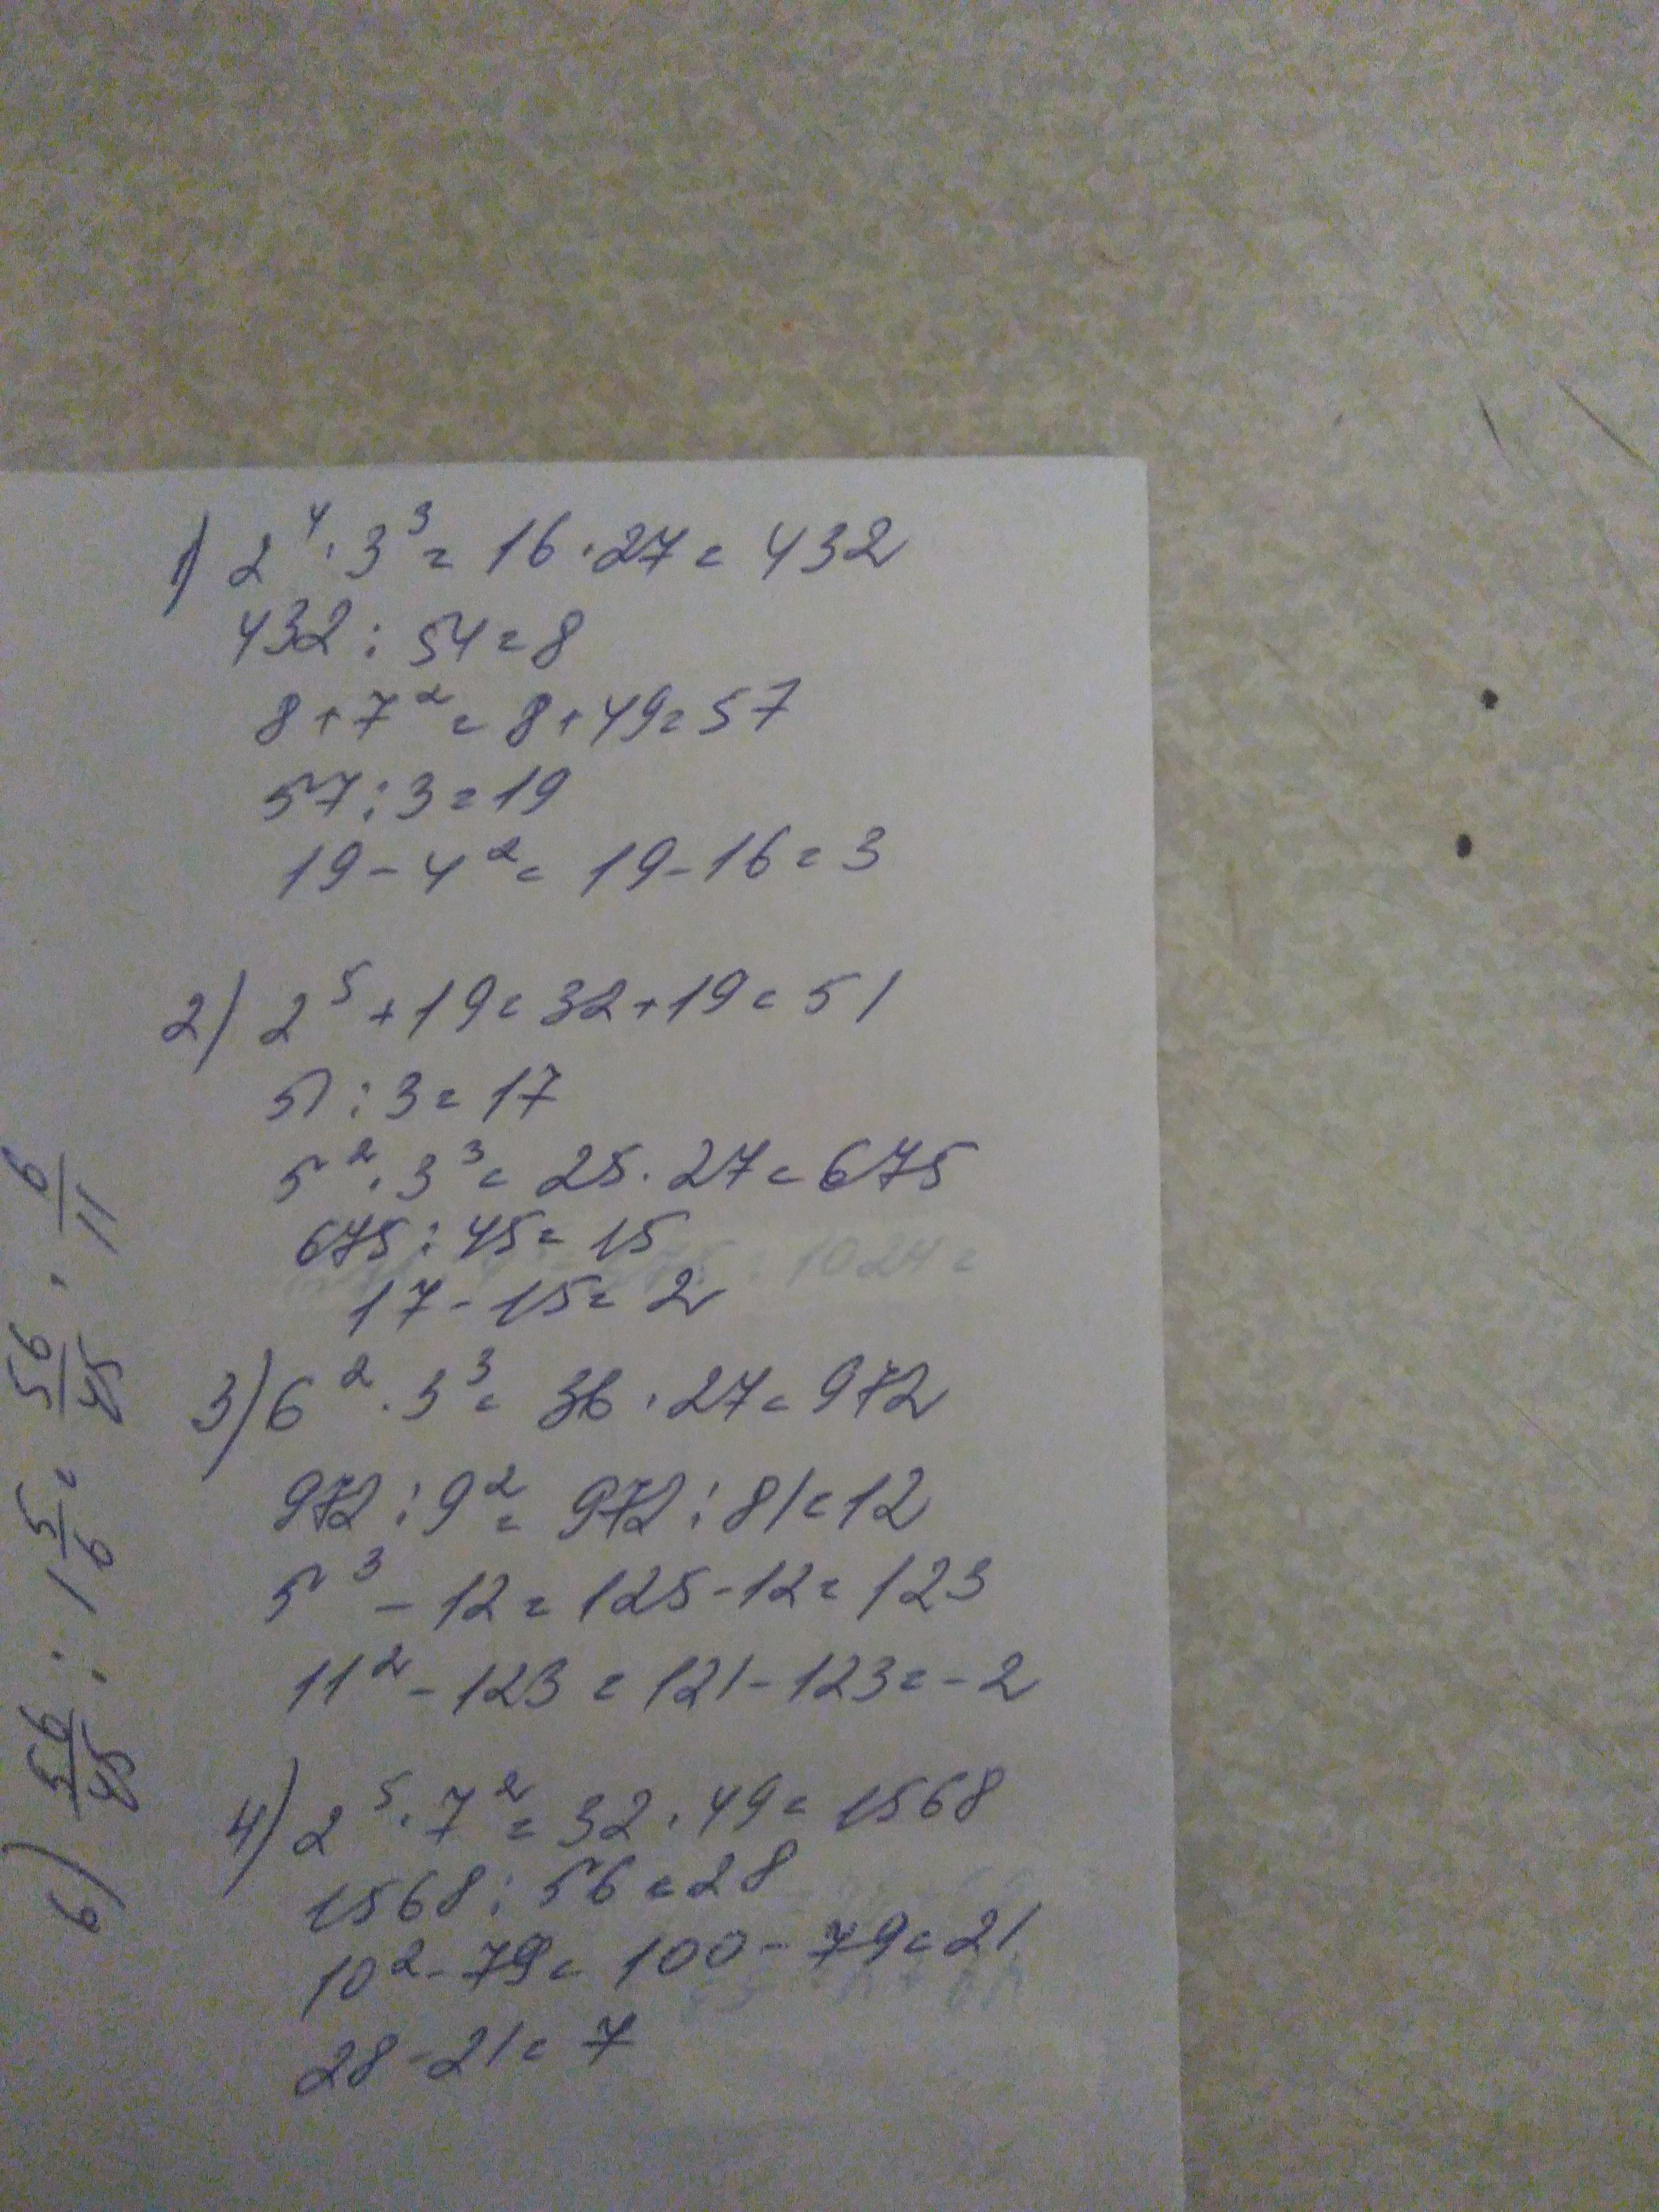 1) 2⁴ · 3³ = 16 · 27 = 432
432 : 54 = 8
8 + 7² = 8 + 49 = 57
57 : 3 = 19
19 - 4² = 19 - 16 = 3
2) 2⁵ + 19 = 32 + 19 = 51
51 : 3 = 17
5² · 3³ = 25 · 27 = 675
675 : 45 = 15
17 - 15 = 2
3) 6² · 3³ = 36 · 27 = 972
972 : 9² = 972 : 81 = 12
5³ - 12 = 125 - 12 = 123
11² - 123 = 121 - 123 = -2
4) 2⁵ · 7² = 32 · 49 = 1568
1568 : 56 = 28
10² - 79 = 100 - 79 = 21
28 - 21 = 7
: 1024 =